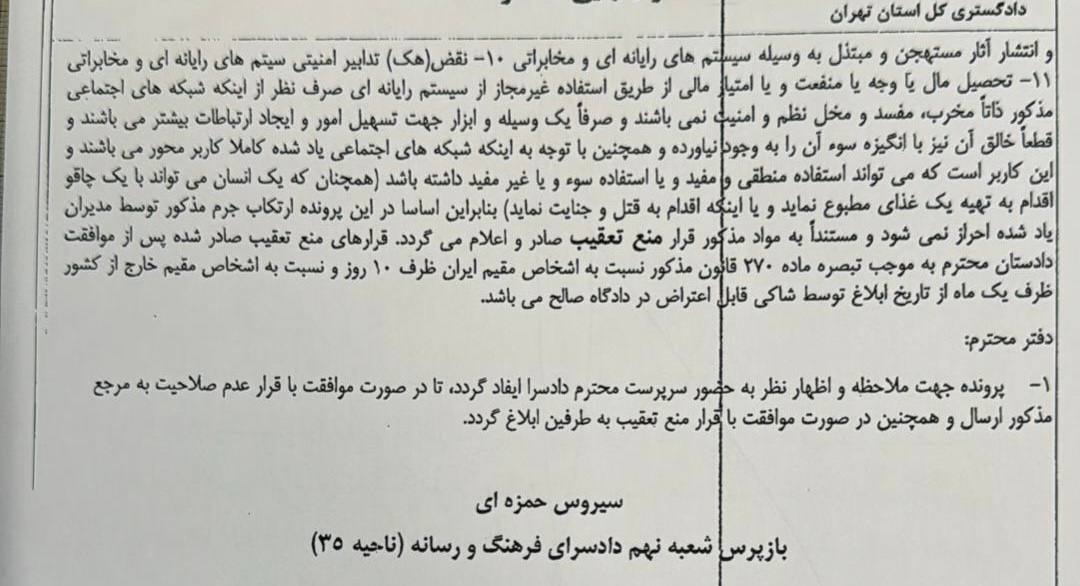 دادگستری کل استان تهران
و انتشار آثار مستهجن و مبتذل به وسیله سیستم های رایانه ای و مخابراتی ۱۰- نقض(هک) تدابیر امنیتی سیتم های رایانه ای و مخابراتی
۱۱- تحصیل مال یا وجه یا منفعت و یا امتیاز مالی از طریق استفاده غیرمجاز از سیستم رایانه ای صرف نظر از اینکه شبکه های اجتماعی
مذکور ذاتاً مخرب، مفسد و مخل نظم و امنیت نمی باشند و صرفاً یک وسیله و ابزار جهت تسهیل امور و ایجاد ارتباطات بیشتر می باشند و
قطعاً خالق آن نیز با انگیزه سوء آن را به وجود نیاورده و همچنین با توجه به اینکه شبکه های اجتماعی یاد شده کاملا کاربر محور می باشند و
این کاربر است که می تواند استفاده منطقی و مفید و یا استفاده سوء و یا غیر مفید داشته باشد (همچنان که یک انسان می تواند با یک چاقو
اقدام به تهیه یک غذای مطبوع نماید و یا اینکه اقدام به قتل و جنایت نماید) بنابراین اساسا در این پرونده ارتکاب جرم مذکور توسط مدیران
یاد شده احراز نمی شود و مستنداً به مواد مذکور قرار منع تعقیب صادر و اعلام می گردد. قرارهای منع تعقیب صادر شده پس از موافقت
دادستان محترم به موجب تبصره ماده ۲۷۰ قانون مذکور نسبت به اشخاص مقیم ایران ظرف ۱۰ روز و نسبت به اشخاص مقیم خارج از کشور
ظرف یک ماه از تاریخ ابلاغ توسط شاکی قابل اعتراض در دادگاه صالح می باشد.
دفتر محترم:
۱- پرونده جهت ملاحظه و اظهار نظر به حضور سرپرست محترم دادسرا ایفاد گردد، تا در صورت موافقت با قرار عدم صلاحیت به مرجع
مذکور ارسال و همچنین در صورت موافقت با قرار منع تعقیب به طرفین ابلاغ گردد.
سیروس حمزه ای
بازپرس شعبه نهم دادسرای فرهنگ و رسانه (ناحیه ۳۵)